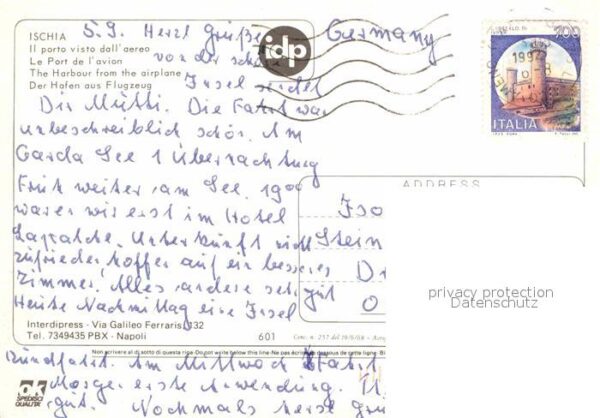 ISCHIA
Il porto visto dall'aereo
Le Port de l'avion
The Harbour from the airplane
Der Hafen aus Flugzeug
idp
5.9. Herzl Grüße
von der schönen
Insel sendet
Dir Mütti. Die Fahrt war
unbeschreiblich schön. Am
Garda See 1 Übernachtung
Früh weiter am See. 19 00
waren wir erst im Hotel
Unterkunft nicht
zufrieden hoffen auf ein besseres
Zimmer. Alles andere sehr gut
Heute Nachmittag eine Insel
Rundfahrt. Am Mittwoch
Morgen erste Anwendung.
gut. Nochmals herzl Grü
Germany
700
1992
ITALIA
ADDRESS
Stein
D
O
privacy protection
Datenschutz
Interdipress - Via Galileo Ferraris, 132
Tel. 7349435 PBX - Napoli
601
Conc. n. 257 del 19/9/68
Non scrivere al di sotto di questa riga - Do not write below this line - Ne pas écrire au dessous de cette ligne
OK
SPEDISCI
QUALITA'